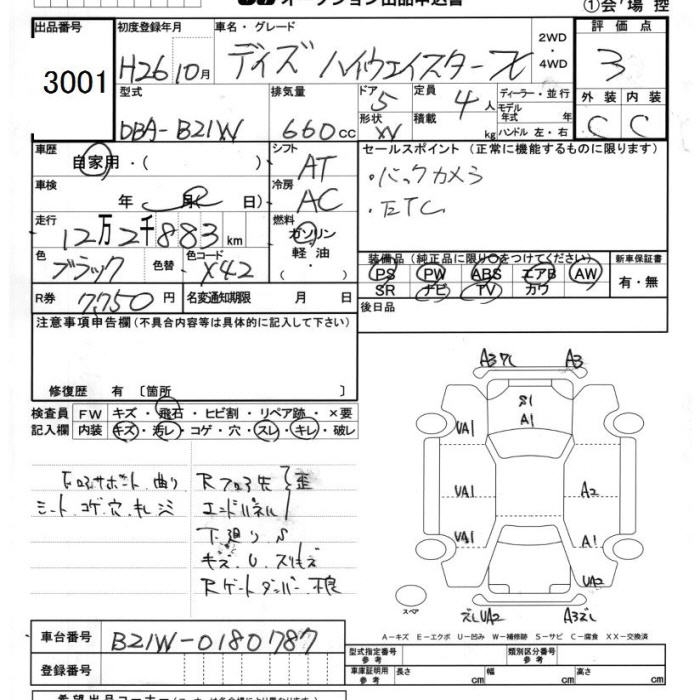 オークション出品申込書 ①会場控
出品番号 初度登録年月 車名・グレード 2WD ・ 4WD 評価点
3001 H26 10月 デイズ ハイウェイスターX 3
型式 排気量 ドア 5 定員 4人 ディーラー・並行 外装 内装
DBA-B21W 660cc 形状 積載 kg モデル年式 年式 ハンドル 左・右 C C
車歴 自家用・( ) シフト AT セールスポイント (正常に機能するものに限ります)
車検 年 月 日) 冷房 AC ・バックカメラ
・ETC
走行 12万2千883km 燃料 ガソリン 軽油
色 ブラック 色替 色コード X42 装備品 (純正品に限り○をつけてください) 新車保証書
PS PW ABS エアB AW 有・無
SR ナビ TV カワ
R券 7750円 名変通知期限 月 日 後日品
注意事項申告欄 (不具合内容等は具体的に記入して下さい)
修復歴 有 [箇所 ]
検査員 FW キズ・飛石・ヒビ割・リペア跡・×要
記入欄 内装 キズ・汚レ・コゲ・穴・スレ・キレ・破レ
A3ワレ A3
S1
A1
UA1
UA1 A2
UA1 A1
UA2
スペア
ズレUA2 A3ズレ
サポート 曲り 歪
シート コゲ 穴 キレ シミ エンドパネル
下廻りS
キズ U スリキズ
Rゲートダンパー不良
A-キズ E-エクボ U-凹み W-補修跡 S-サビ C-腐食 XX-交換済
車台番号 B21W-0180787
型式指定番号 参考 類別区分番号 参考
登録番号 車庫証明用 参考 長さ cm 幅 cm 高さ cm
希望出品コーナー